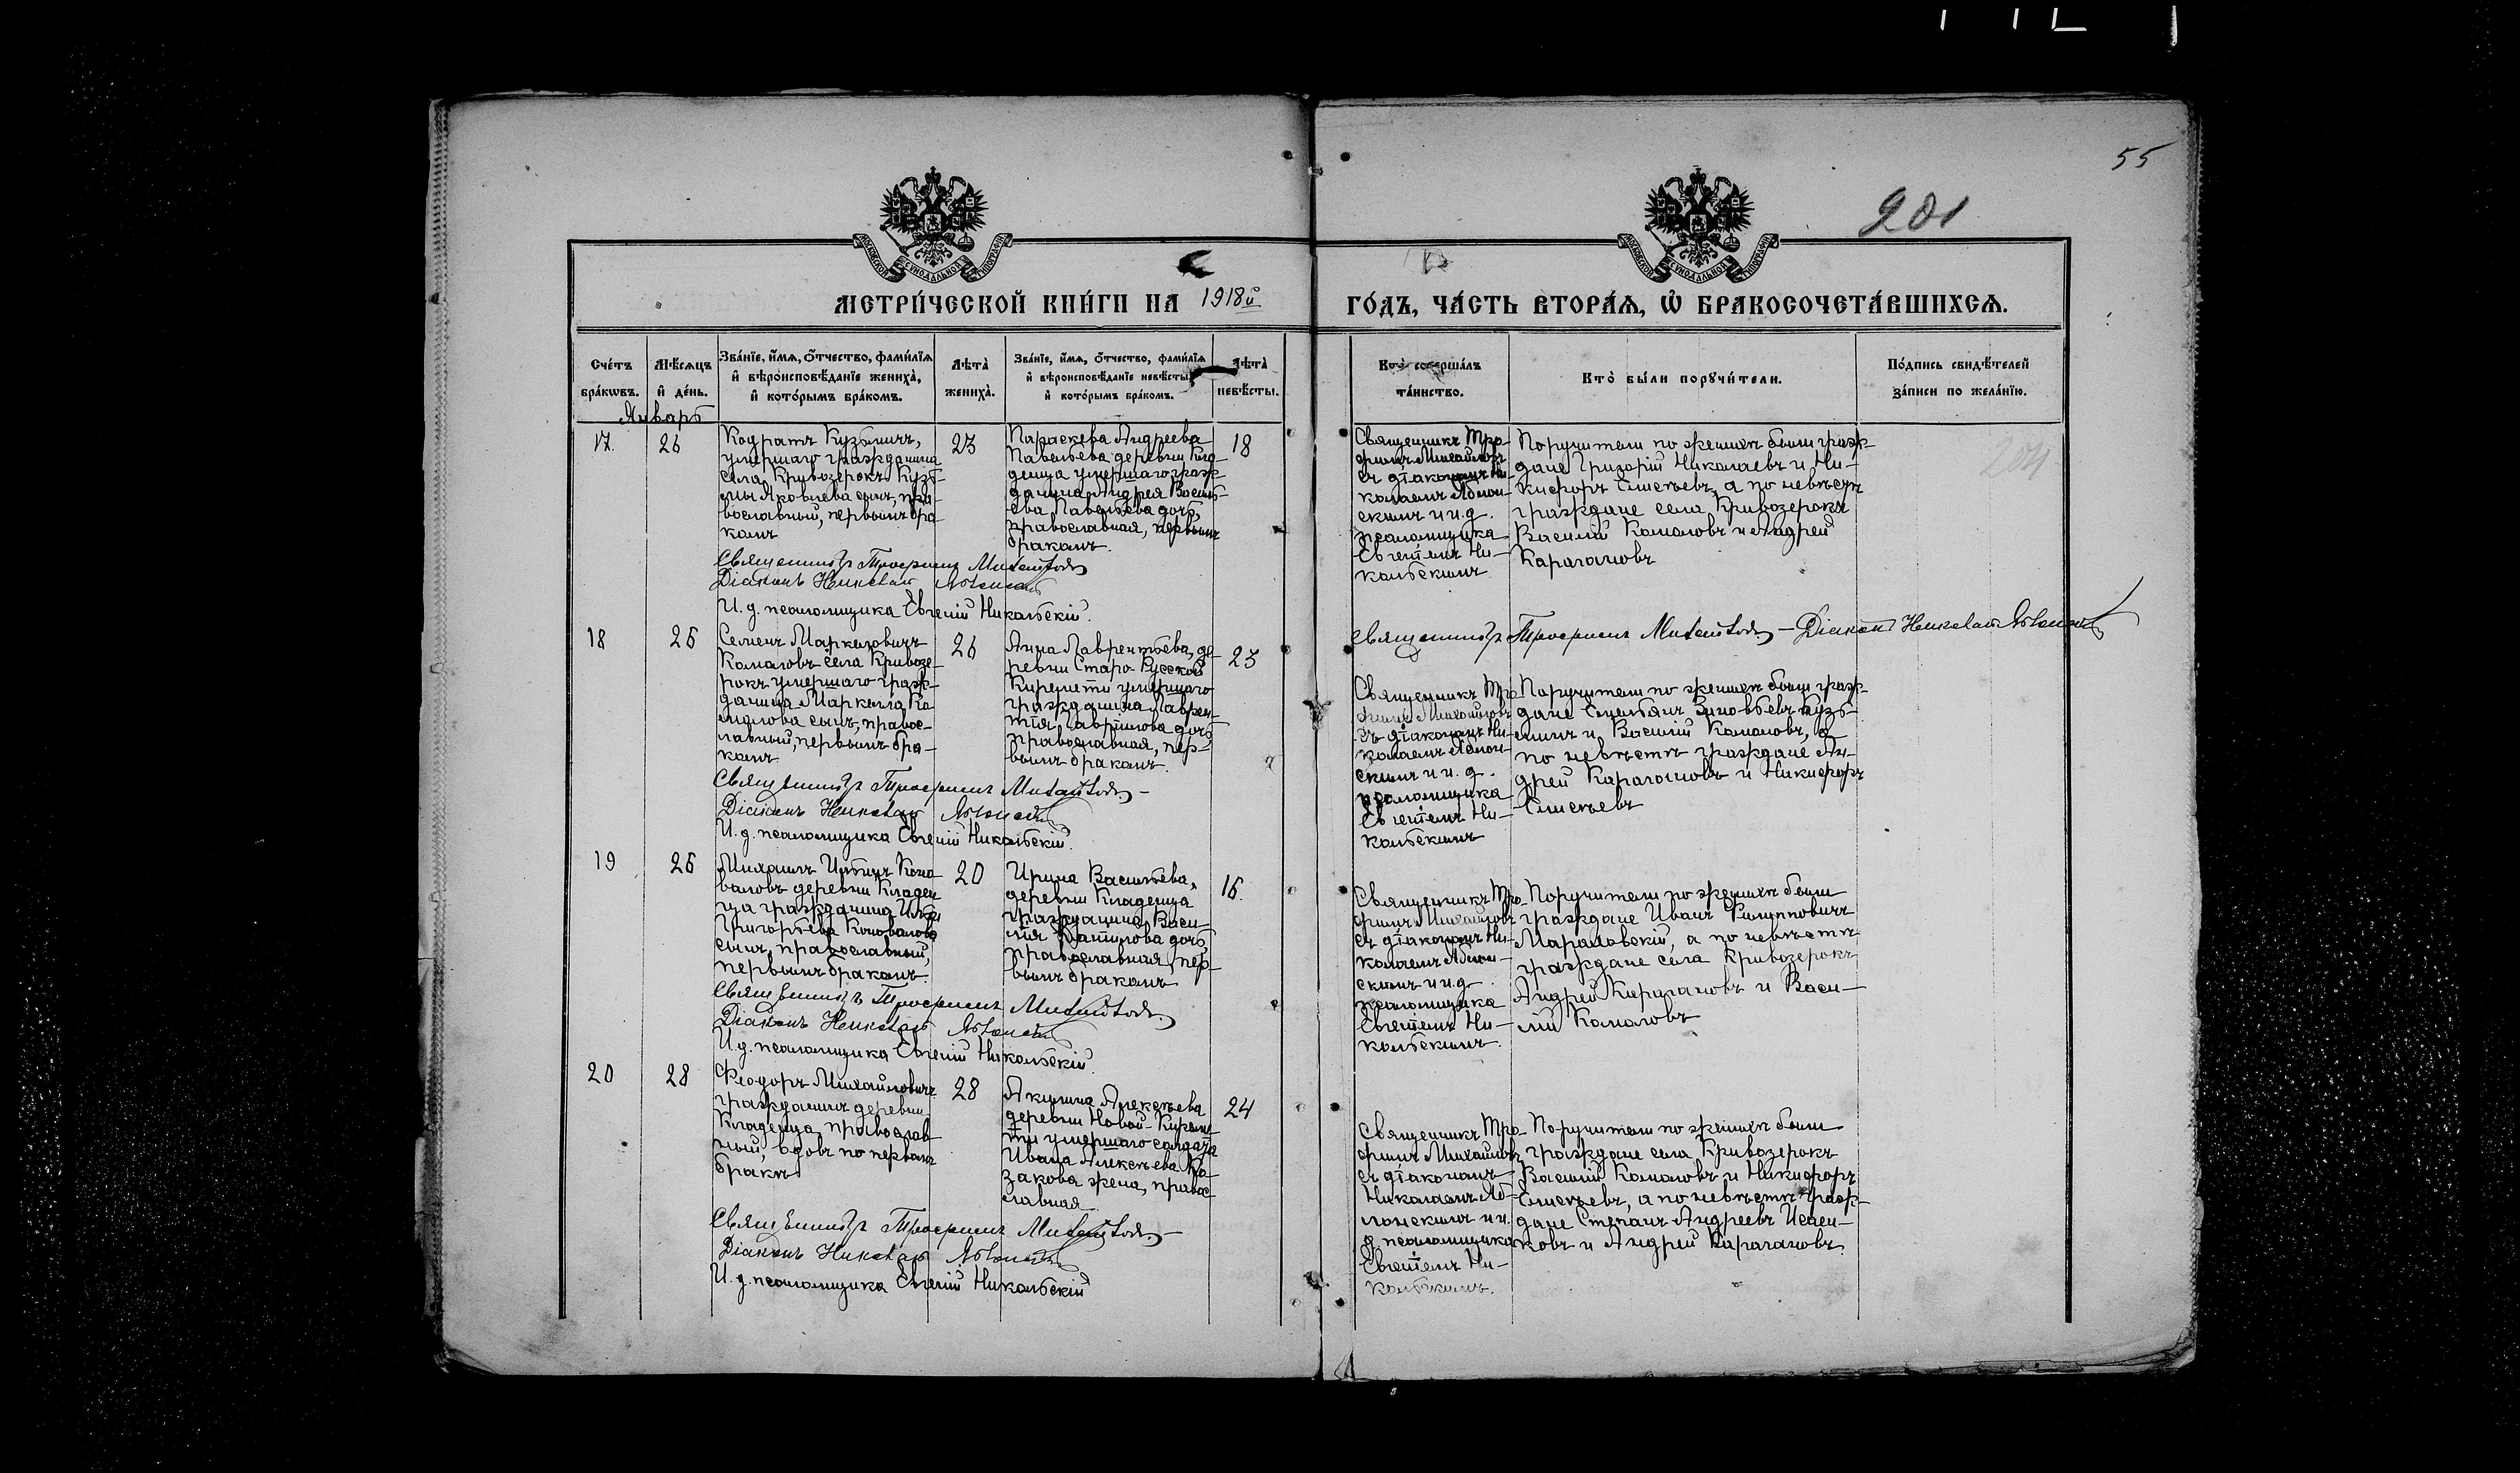 55
201
МЕТРИ́ЧЕСКОЙ КНИ́ГИ НА 1918й ГО́ДЪ, ЧА́СТЬ ВТОРА́Ѧ, Ѽ БРАКОСОЧЕТА́ВШИХСѦ.
Сче́тъ бра́кѡвъ.
Мѣ́сѧцъ и҆ де́нь.
Зва́нїе, и҆́мѧ, ѻ҆́тчество, фами́лїѧ
и҆ вѣроисповѣ́данїе жениха̀,
и҆ кото́рымъ бра́комъ.
Лѣта̀ жениха̀.
Зва́нїе, и҆́мѧ, ѻ҆́тчество, фами́лїѧ
и҆ вѣроисповѣ́данїе невѣ́сты,
и҆ кото́рымъ бра́комъ.
Лѣта̀ невѣ́сты.
Кто̀ соверша́лъ
та́инство.
Кто̀ бы́ли порꙋчи́тели.
По́дпись свидѣ́телей
за́писи по жела́нїю.
Январь
17.
26
Кодратъ Кузьмичъ,
умершаго гражданина
села Кривозерокъ Кузь-
мы Яковлева сынъ, пра-
вославный, первымъ бра-
комъ
23
Параскева Андреева
Павельева деревни Кла-
денца умершаго граж-
данина Андрея Василь-
ева Павельева дочь,
православная, первымъ
бракомъ.
18
Священникъ Тро-
фимъ Михайловъ
съ діакономъ Ни-
колаемъ Аблон-
скимъ и и. д.
псаломщика
Евгеніемъ Ни-
кольскимъ
Поручители по женихѣ были граж-
дане Григорій Николаевъ и Ни-
кифоръ Елисѣевъ, а по невѣстѣ
граждане села Кривозерокъ
Василій Камаловъ и Андрей
Карагановъ
Священникъ Трофимъ Михайловъ
Діаконъ Николай Аблонскій
И. д. псаломщика Евгеній Никольскій.
18
26
Семенъ Маркеловичъ
Камаловъ села Кривозе-
рокъ умершаго граж-
данина Маркелла Ка-
малова сынъ, правос-
лавный, первымъ бра-
комъ
26
Анна Лаврентьева, де-
ревни Старо-Русской
Киремети умершаго
гражданина Лаврен-
тія Гаврилова дочь
православная, пер-
вымъ бракомъ.
23
Священникъ Трофимъ Михайловъ – Діаконъ Николай Аблонскій
Священникъ Тро-
фимъ Михайловъ
съ діакономъ Ни-
колаемъ Аблон-
скимъ и и. д.
псаломщика
Евгеніемъ Ни-
кольскимъ
Поручители по женихѣ были граж-
дане Зиновьевъ Кузь-
минъ и Василій Камаловъ, а
по невѣстѣ граждане Ан-
дрей Карагановъ и Никифоръ
Елисѣевъ
Священникъ Трофимъ Михайловъ –
Діаконъ Николай Аблонскій
И. д. псаломщика Евгеній Никольскій.
19
26
Михаилъ Ильинъ Коно-
валовъ деревни Кладен
ца гражданина Ильи
Григорьева Коновалова
сынъ, православный,
первымъ бракомъ.
20
Ирина Васильева,
деревни Кладенца
гражданина Васи-
лія дочь,
православная, пер-
вымъ бракомъ
16.
Священникъ Тро-
фимъ Михайловъ
съ діакономъ Ни-
колаемъ Аблон-
скимъ и и. д.
псаломщика
Евгеніемъ Ни-
кольскимъ.
Поручители по женихѣ были
граждане Иванъ Филипповичъ
Мараловскій, а по невѣстѣ
граждане села Кривозерокъ
Андрей Карагановъ и Васи-
лій Камаловъ
Священникъ Трофимъ Михайловъ
Діаконъ Николай Аблонскій
И. д. псаломщика Евгеній Никольскій.
20
28
Феодоръ Михайловичъ
гражданинъ деревни
Кладенца, православ-
ный, вдовъ по первомъ
бракѣ
28
Акилина Алексѣева
деревни Новой-Кереме-
ти умершаго солдата
Ивана Алексѣева Ка-
закова жена, правос-
лавная
24
Священникъ Тро-
фимъ Михайловъ
съ діакономъ
Николаемъ Аб-
лонскимъ и и.
д. псаломщика
Евгеніемъ Ни-
кольскимъ.
Поручители по женихѣ были
граждане села Кривозерокъ
Василій Камаловъ и Никифоръ
Елисѣевъ, а по невѣстѣ граж-
дане Степанъ Андреевъ Исаен-
ковъ и Андрей Карагановъ.
Священникъ Трофимъ Михайловъ –
Діаконъ Николай Аблонскій
И. д. псаломщика Евгеній Никольскій